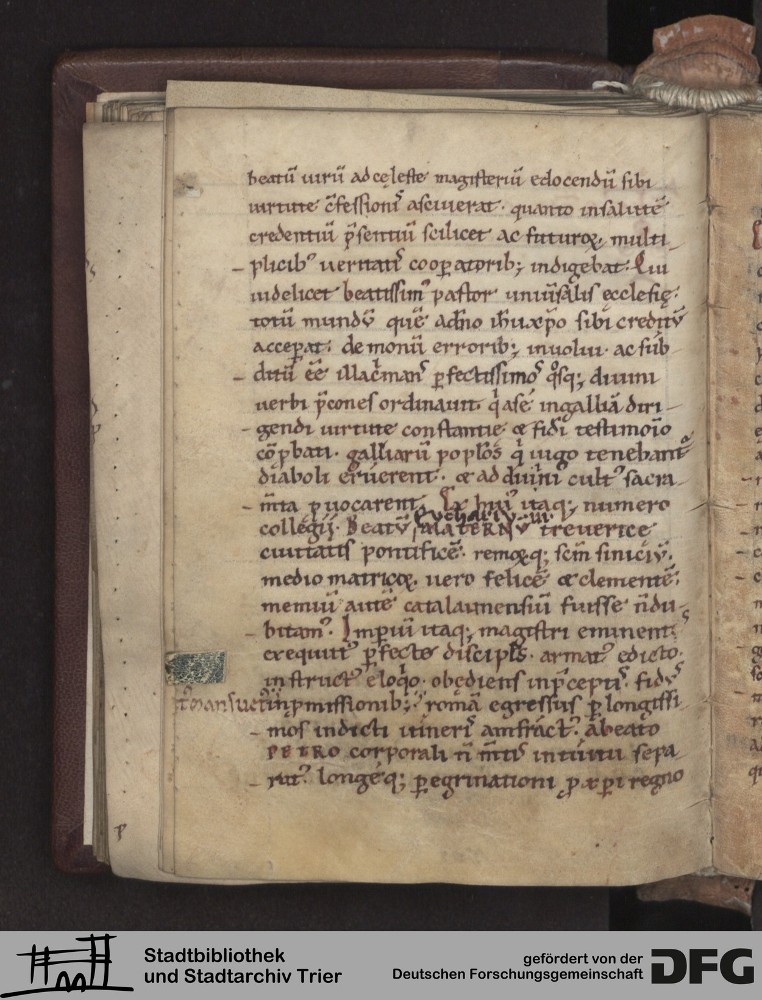 beatū uirū ad cęleste magisteriū edocendū sibi
uirtute c̄fessionis asciuerat· quanto in salutē
credentiū p̄sentiū scilicet ac futuroꝝ, multi
plicib; ueritatis cooꝑatorib; indigebat· Qui
uidelicet beatissim᾽ pastor uniūsalis ecclesię·
totū mundū quē a dn̄o ih̄u xp̄o sibi creditū
acceꝑat· demonū errorib; inuolui· ac sub
ditū eē illac̄mans ꝑfectissimos diuini
uerbi p̄cones ordinauit· q̇ a se in galliā diri
gendi uirtute constantie & fidei testimoīo
cōꝓbati· galliarū poplōs q̇ iugo tenebant᾽
diaboli eruerent· & ad diuini cult᾽ sacra
mīta ꝓuocarent. Ex hui᾽ itaq; numero
collegii· Beatū Euchariū
MATERNŪ treuerice
ciuitatis pontificē· remoꝝq; sc̄m siniciū·
medio matricoꝝ· uero felicē & clementē·
memiū autē catalaunensiū fuisse n̄ du
bitam᾽· Imꝑiū itaq; magistri eminentis
exequut᾽ ꝑfecte discipls· armat᾽ edicto·
instruct᾽ eloq̇o· obędiens in p̄ceptis· fidus
mansuet᾽ in ꝓmissionib; romā egressus ꝑ longissi
mos indicti itineris amfract᾽· a beato
PETRO corporali n̄ mīt᾽ intuitu sepa
rat᾽· longeq; ꝑegrinationi ꝓ xp̄i regno
Stadtbibliothek
und Stadtarchiv Trier
gefördert von der
Deutschen Forschungsgemeinschaft
DFG